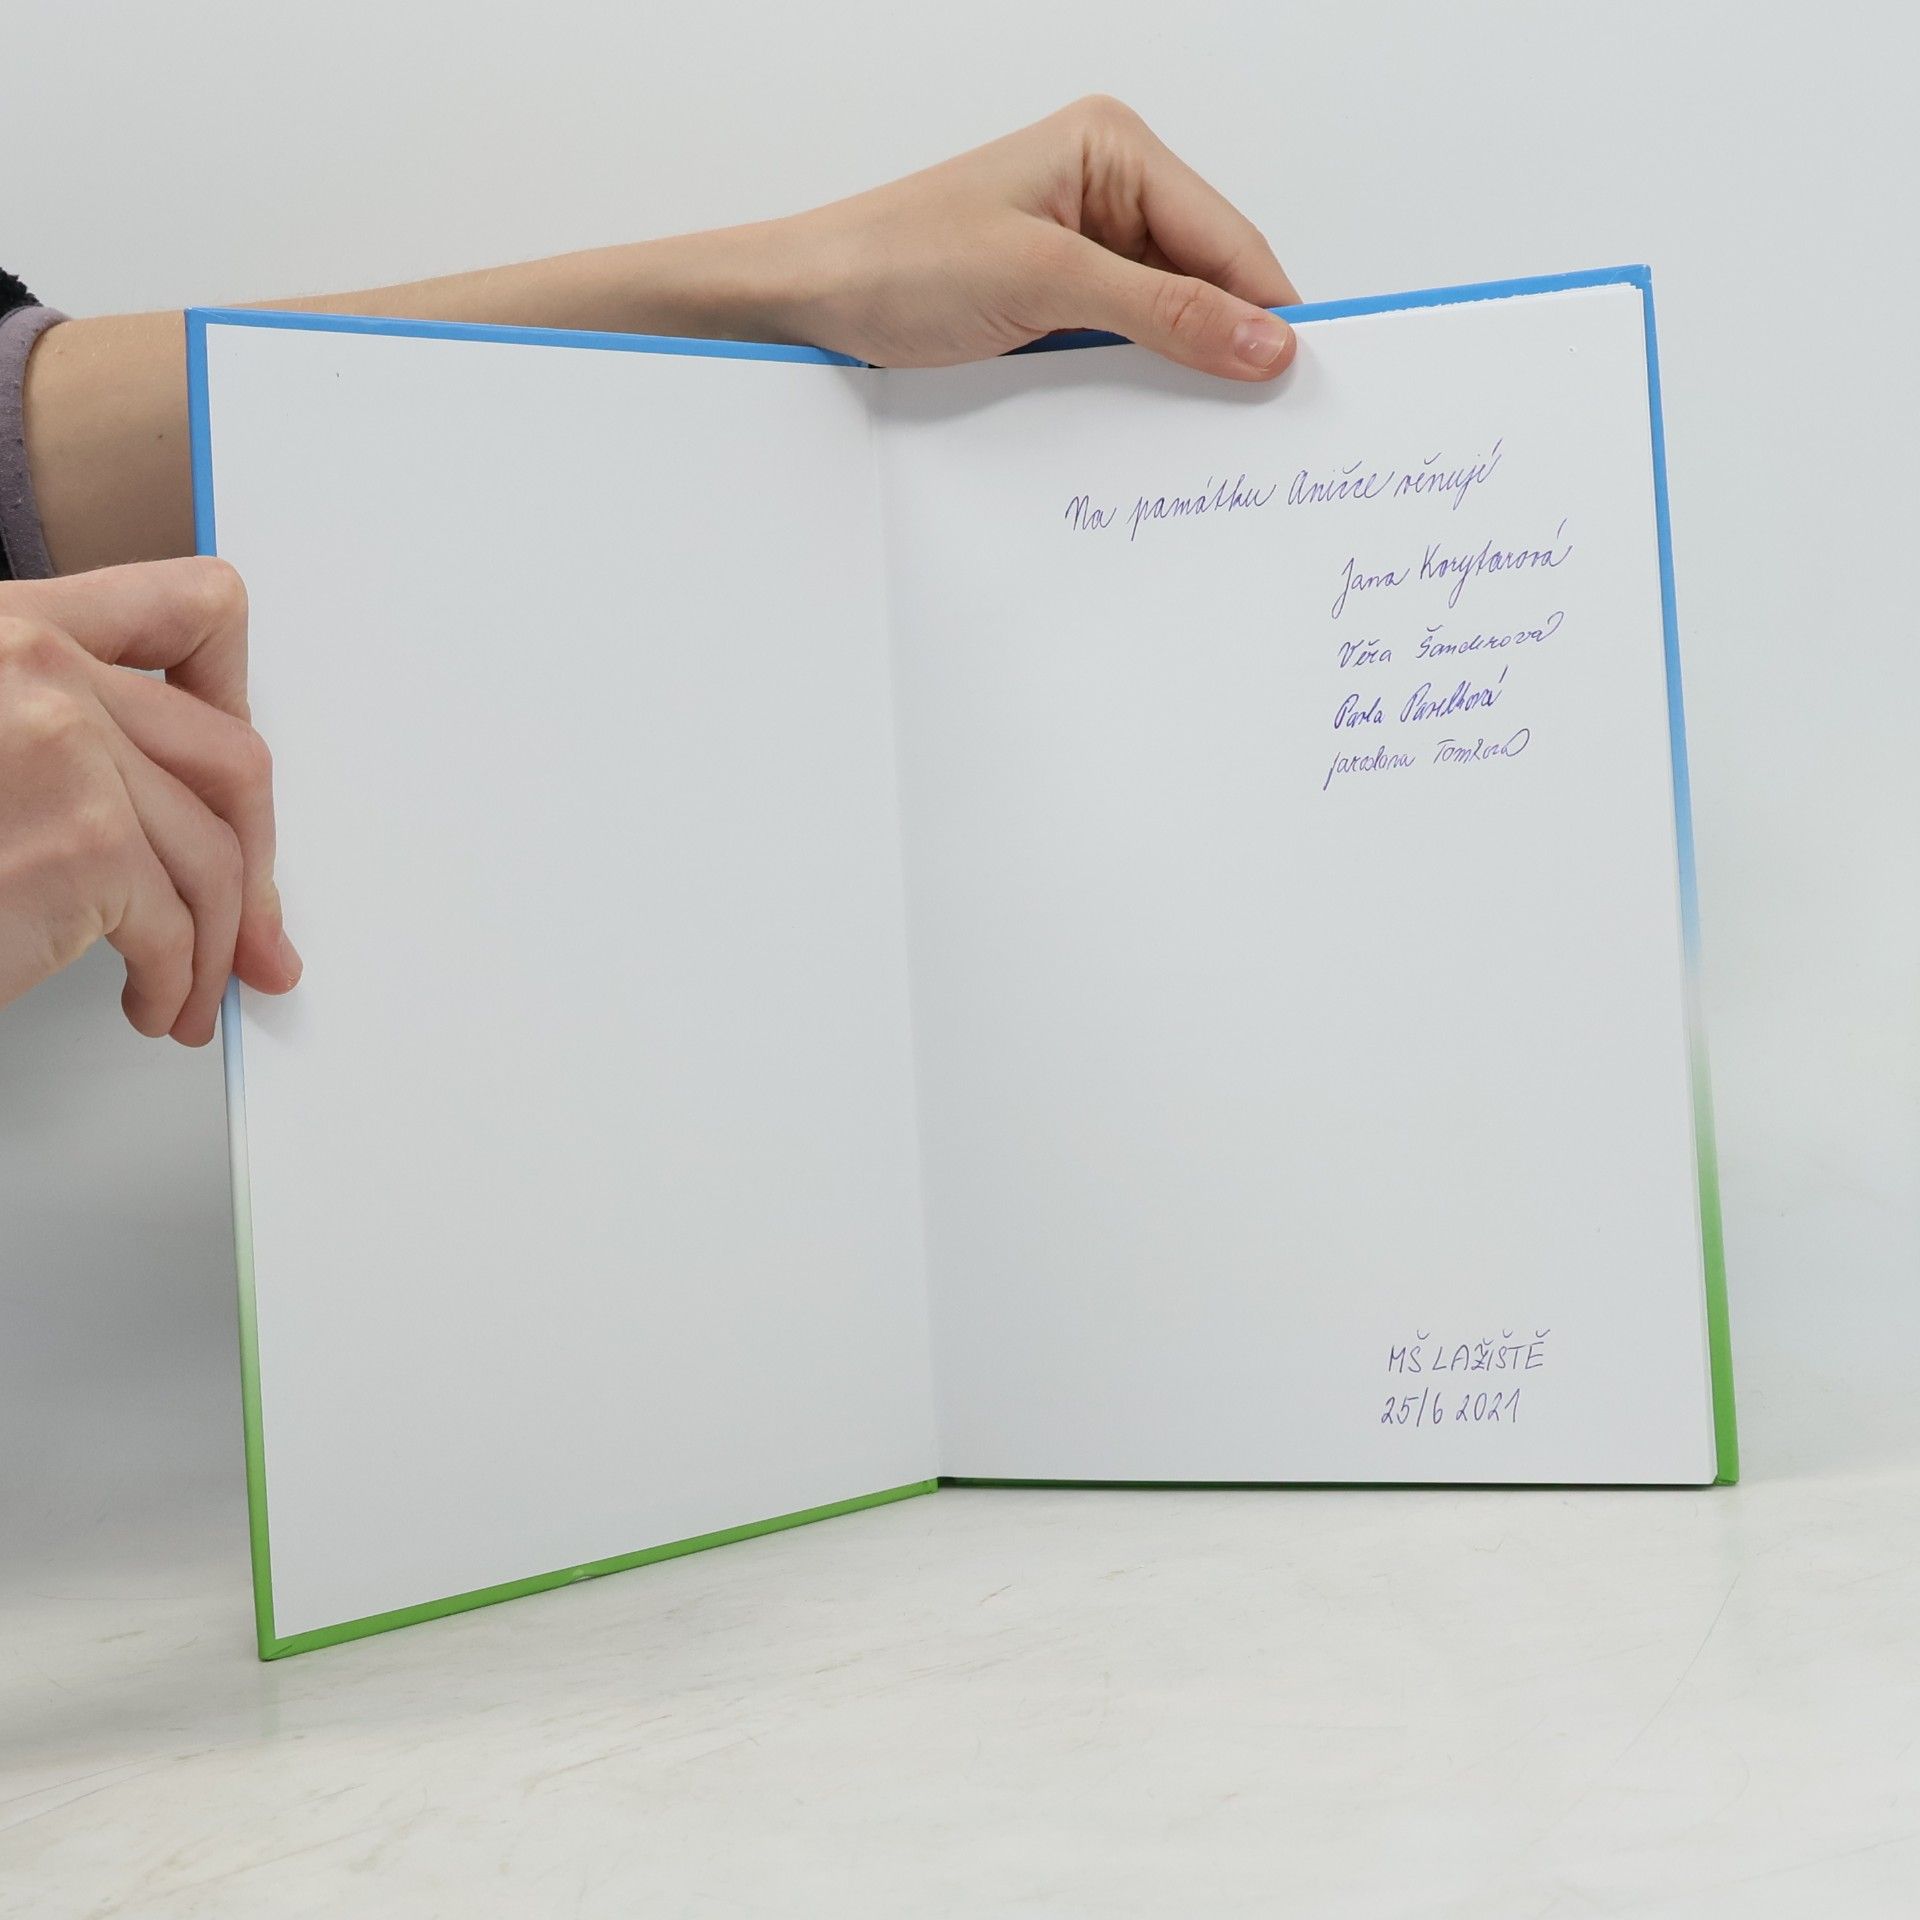 Na památku Aničce věnují
Jana Korytarová
Věra Šanderová
Pavla Pavelková
Jaroslava Tomková
MŠ LAŽIŠTĚ
25/6 2021